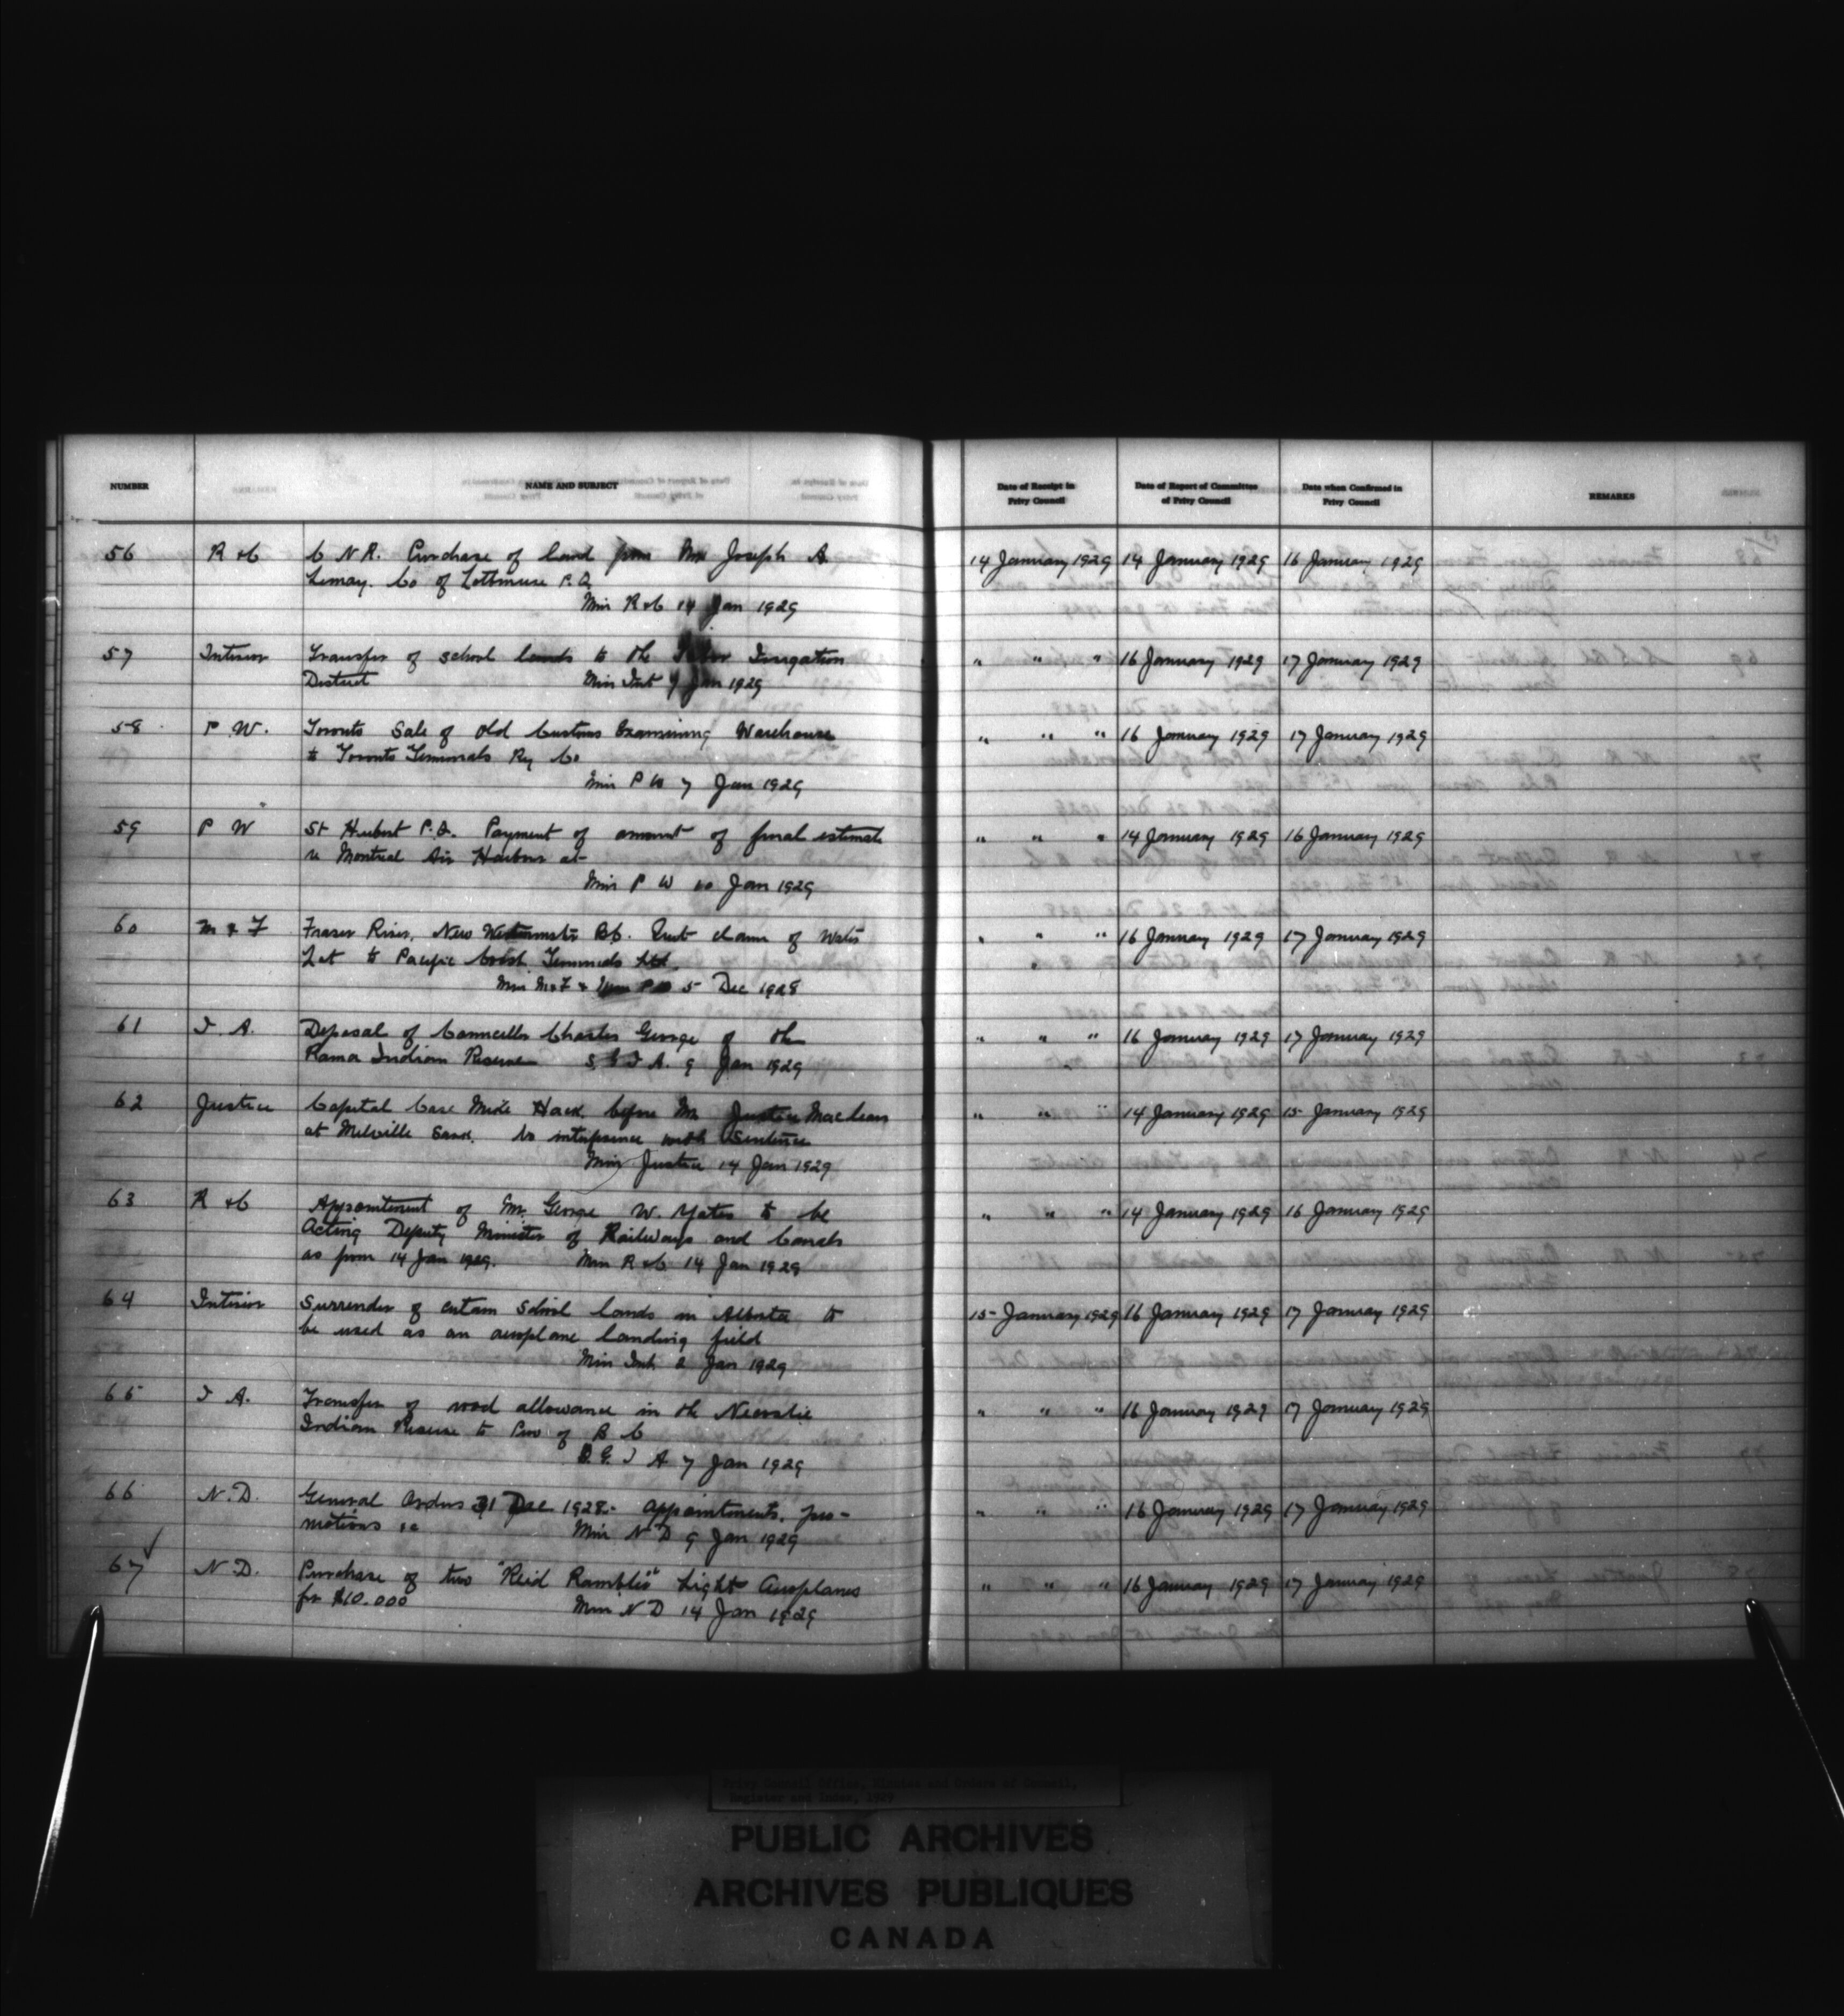 NUMBER NAME AND SUBJECT Date of Receipt in Privy Council Date of Report of Committee of Privy Council Date when Confirmed in Privy Council REMARKS
56 R & C C N R. Purchase of land from Mr Joseph A 14 January 1929 14 January 1929 16 January 1929
Lemay. Co of P. Q.
Min R & C 14 Jan 1929
57 Interior Transfer of school lands to the Irrigation " " " 16 January 1929 17 January 1929
District Min Int 7 Jan 1929
58 P. W. Toronto Sale of Old Customs Examining Warehouse " " " 16 January 1929 17 January 1929
to Toronto Terminals Ry Co
Min P W 7 Jan 1929
59 P W St Hubert P.Q. Payment of amount of final estimate " " " 14 January 1929 16 January 1929
re Montreal Air Harbour at
Min P W 10 Jan 1929
60 M & F Fraser River, New Westminster B.C. Quit claim of Water " " " 16 January 1929 17 January 1929
Lot to Pacific Coast Terminals Ltd.
Min M & F & Min P W 5 Dec 1928
61 I. A. Deposal of Councillor Charles George of the " " " 16 January 1929 17 January 1929
Rama Indian Reserve S G I A. 9 Jan 1929
62 Justice Capital Case Mike Hack before Mr Justice MacLean " " " 14 January 1929 15 January 1929
at Melville Sask. No interference with Sentence
Min Justice 14 Jan 1929
63 R & C Appointment of Mr. George W. Yates to be " " " 14 January 1929 16 January 1929
Acting Deputy Minister of Railways and Canals
as from 14 Jan 1929. Min R & C 14 Jan 1929
64 Interior Surrender of certain School lands in Alberta to 15 January 1929 16 January 1929 17 January 1929
be used as an aeroplane landing field
Min Int 2 Jan 1929
65 I A. Transfer of road allowance in the " " " 16 January 1929 17 January 1929
Indian Reserve to Prov of B C
S. G. I A 7 Jan 1929
66 N. D. General Orders 31 Dec 1928. Appointments, pro- " " " 16 January 1929 17 January 1929
motions &c Min N D 9 Jan 1929
67 N. D. Purchase of two "Reid Rambler" Light Aeroplanes " " " 16 January 1929 17 January 1929
for $10.000 Min N D 14 Jan 1929
Privy Council Office, Minutes and Orders of Council,
Register and Index, 1929
PUBLIC ARCHIVES
ARCHIVES PUBLIQUES
CANADA